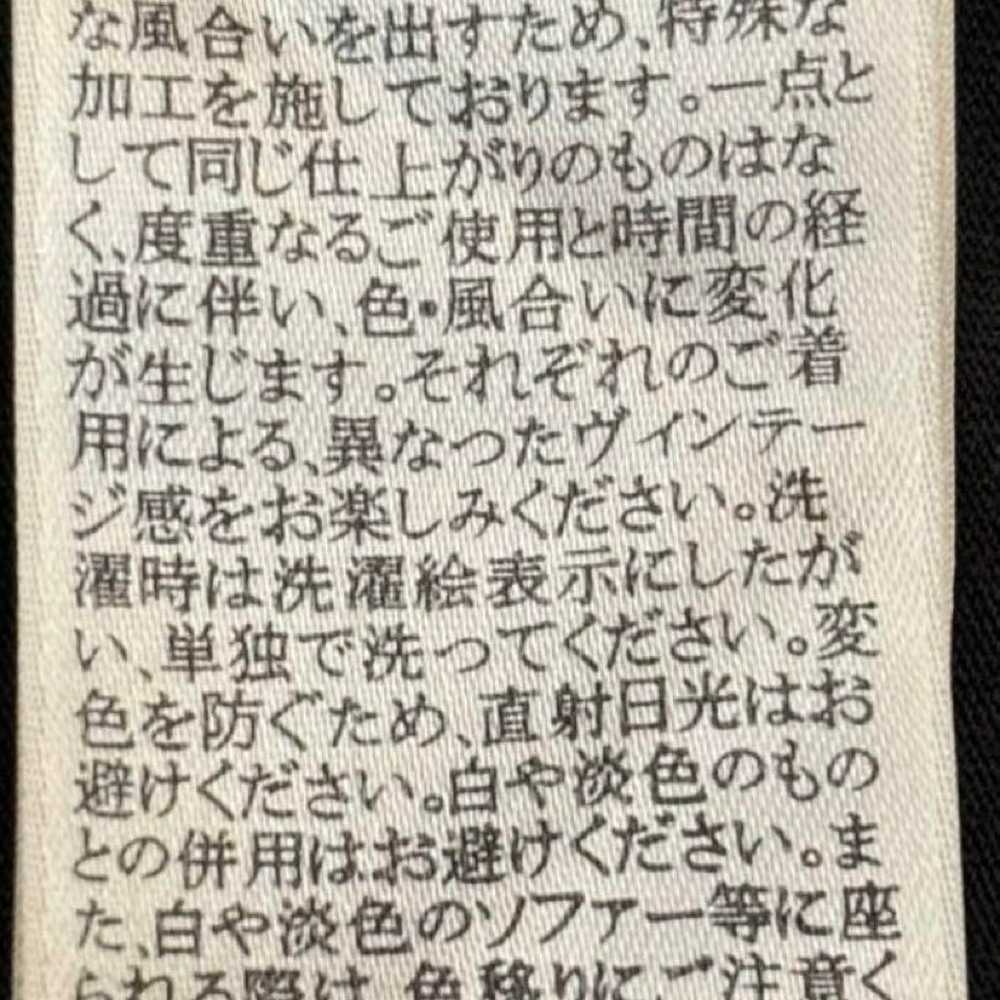 な風合いを出すため、特殊な
加工を施しております。一点と
して同じ仕上がりのものはな
く、度重なるご使用と時間の経
過に伴い、色・風合いに変化
が生じます。それぞれのご着
用による、異なったヴィンテー
ジ感をお楽しみください。洗
濯時は洗濯絵表示にしたが
い、単独で洗ってください。変
色を防ぐため、直射日光はお
避けください。白や淡色のもの
との併用はお避けください。ま
た、白や淡色のソファー等に座
られる際は、色移りにご注意く